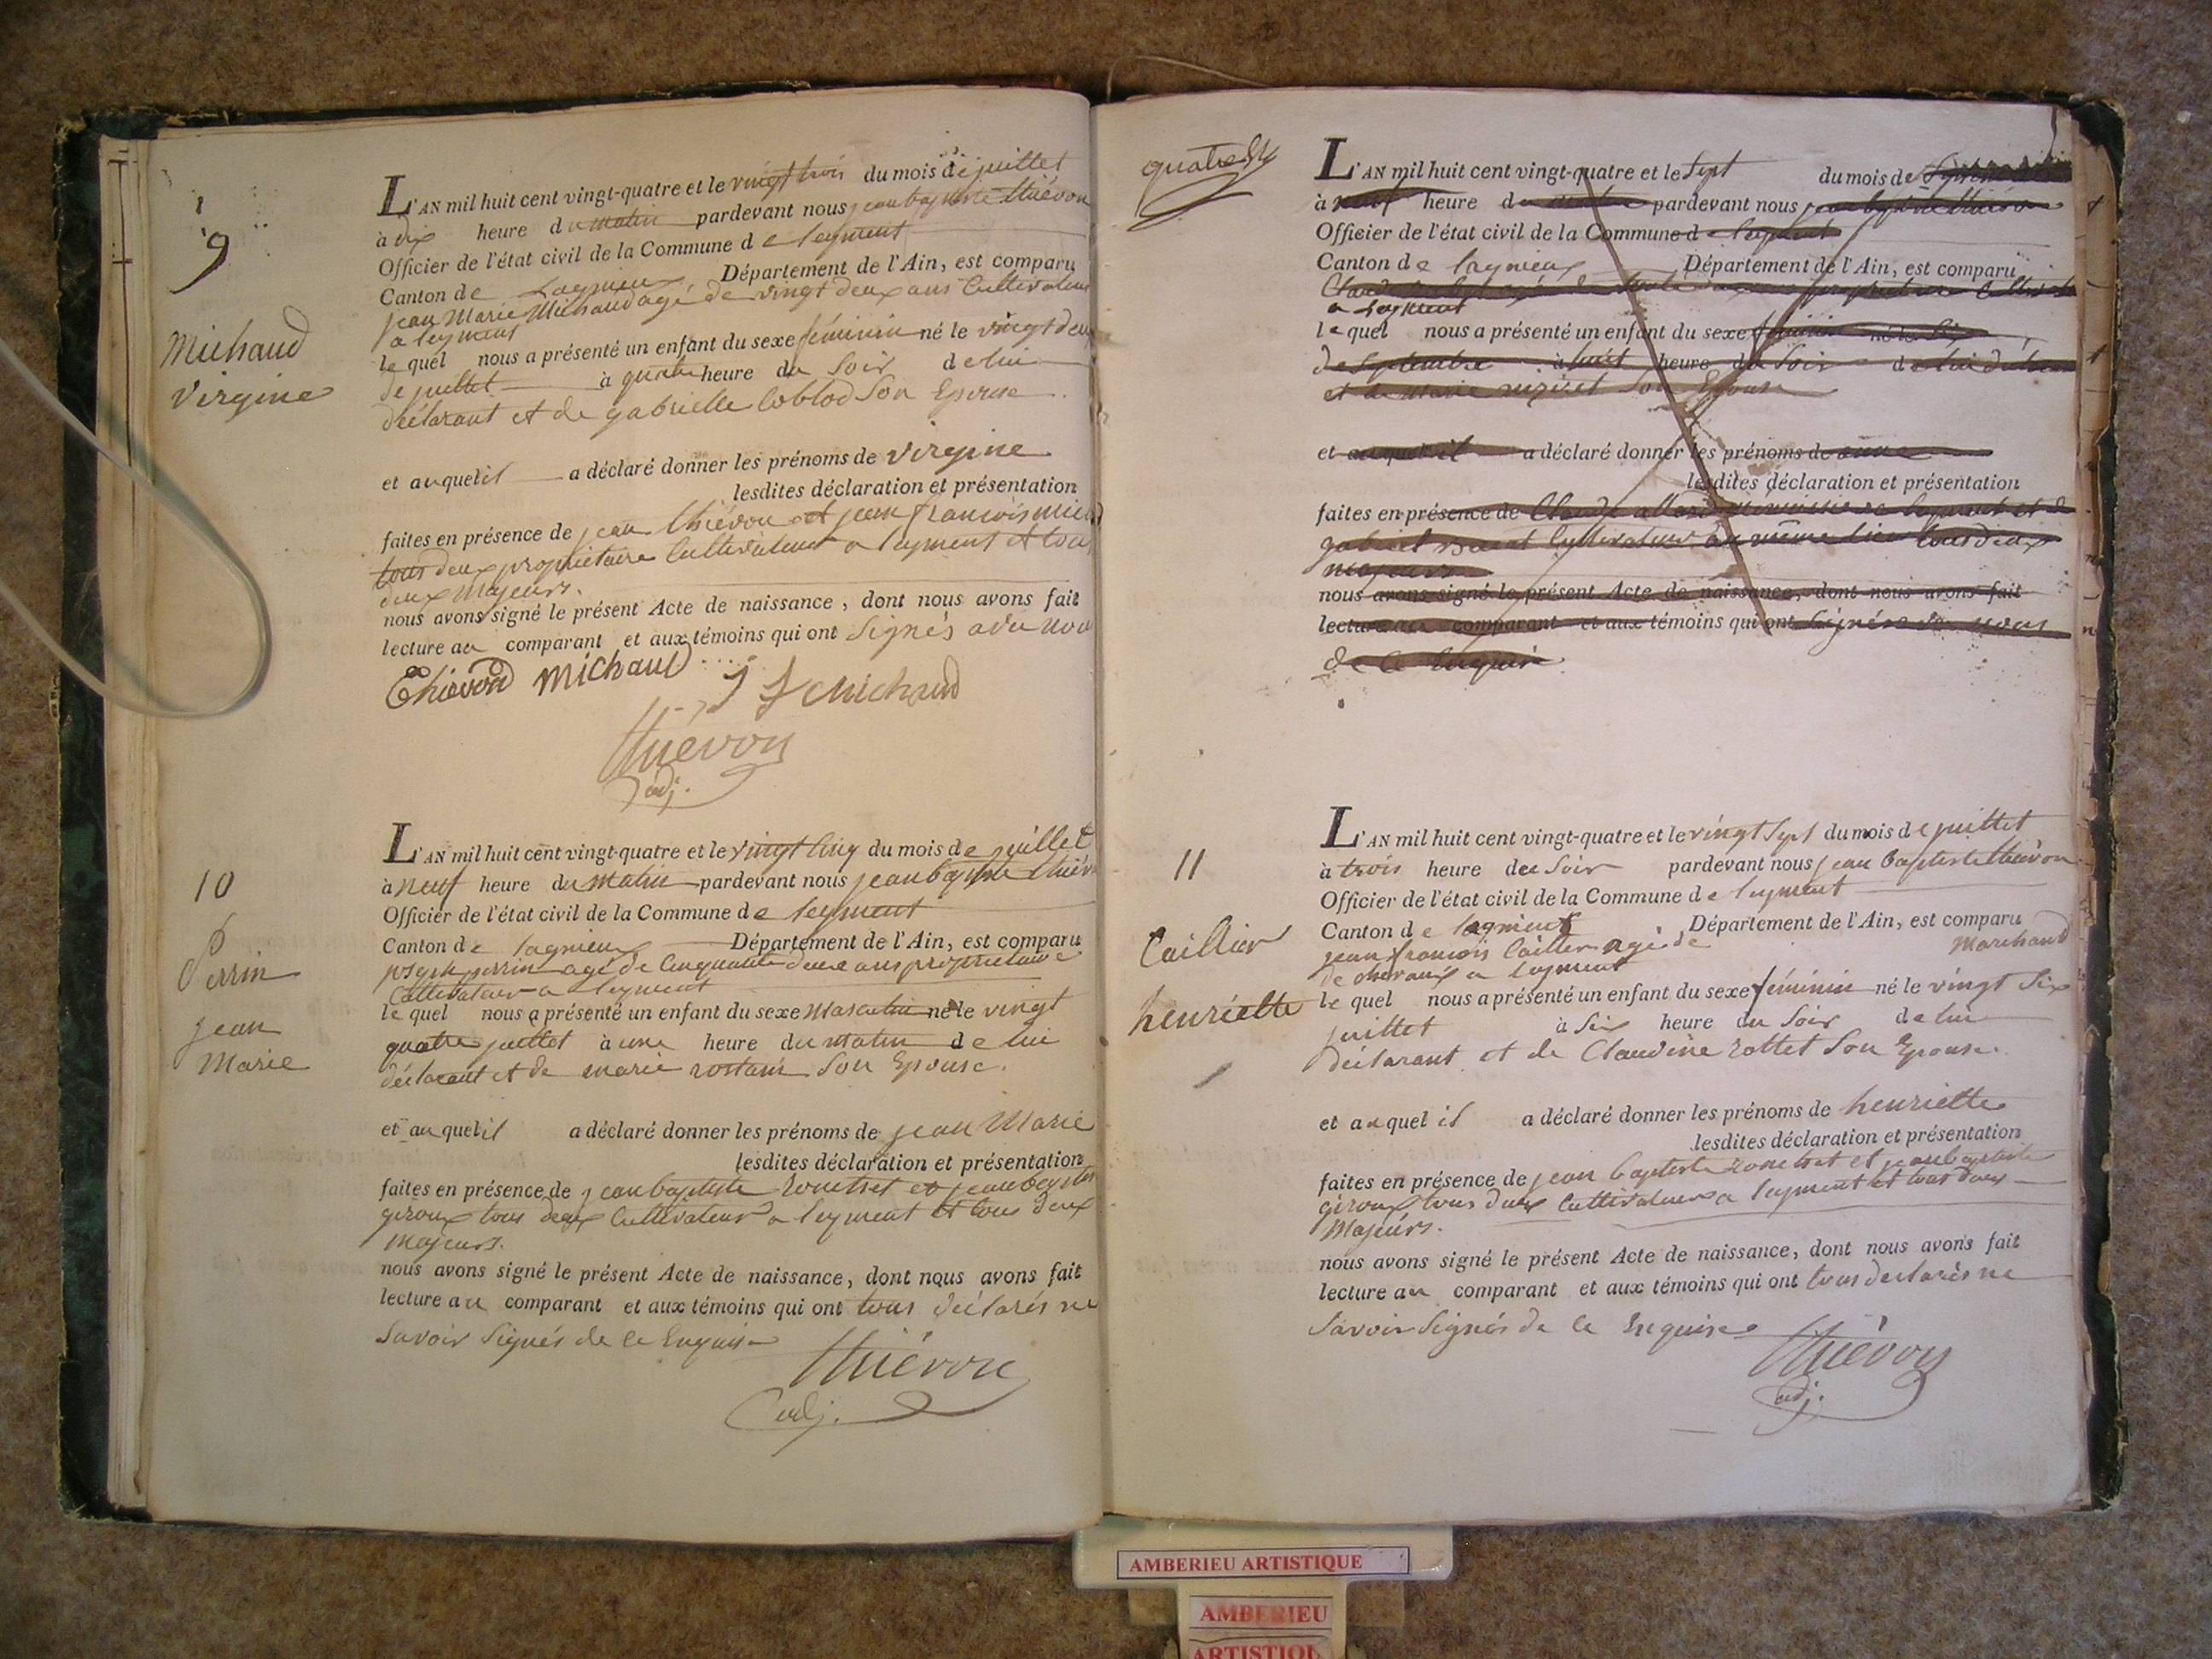 9
Michaud
Virgine
L'AN mil huit cent vingt-quatre et le vingt trois du mois de juillet
à dix heure du matin pardevant nous jean baptiste thiévon
Officier de l'état civil de la Commune de leyment
Canton de Lagnieu Département de l'Ain, est comparu
jean Marie Michaud agé de vingt deux ans Cultivateur
a leyment
lequel nous a présenté un enfant du sexe féminin né le vingt deu
de juillet à quatre heure du Soir de lui
déclarant et de gabrielle Coblod Son Epouse
et auquel il a déclaré donner les prénoms de Virgine
lesdites déclaration et présentation
faites en présence de jean thiévon et jean françois mich
tous deux propriétaire Cultivateur a leyment et tous
deux Majeurs.
nous avons signé le présent Acte de naissance, dont nous avons fait
lecture au comparant et aux témoins qui ont Signés avec nou
Thievon Michaud J F Michaud
Thiévon
adj.
10
Perrin
jean
Marie
L'AN mil huit cent vingt-quatre et le vingt Cinq du mois de juillet
à neuf heure du Matin pardevant nous jean baptiste thiév
Officier de l'état civil de la Commune de leyment
Canton de lagnieu Département de l'Ain, est comparu
joseph perrin agé de Cinquante deux ans propriétaire
Cultivateur a leyment
lequel nous a présenté un enfant du sexe Masculin né le vingt
quatre juillet à une heure du matin de lui
déclarant et de marie rostain Son Epouse.
et auquel il a déclaré donner les prénoms de jean Marie
lesdites déclaration et présentation
faites en présence de jean baptiste et jean baptiste
giroux tous deux Cultivateur a leyment et tous deux
Majeurs.
nous avons signé le présent Acte de naissance, dont nous avons fait
lecture au comparant et aux témoins qui ont tous déclarés ne
Savoir Signés de ce Enquis
Thiévon
adj.
quatre
L'AN mil huit cent vingt-quatre et le Sept du mois de Septembre
à neuf heure du pardevant nous jean baptiste thiévon
Officier de l'état civil de la Commune de leyment
Canton de lagnieu Département de l'Ain, est comparu
Claude propriétaire
a leyment
lequel nous a présenté un enfant du sexe féminin né le Six
de Septembre à huit heure du Soir de lui
et de Marie Son Epouse
et auquel il a déclaré donner les prénoms de
lesdites déclaration et présentation
faites en présence de Claude leyment et
gabriel Cultivateur au même lieu tous deux
majeurs
nous avons signé le présent Acte de naissance, dont nous avons fait
lecture au comparant et aux témoins qui ont nous
de ce Enquis
11
Caillier
henriette
L'AN mil huit cent vingt-quatre et le vingt Sept du mois de juillet
à trois heure du Soir pardevant nous jean baptiste thiévon
Officier de l'état civil de la Commune de leyment
Canton de lagnieu Département de l'Ain, est comparu
jean françois Caillier agé de Marchand
de chevaux a leyment
lequel nous a présenté un enfant du sexe féminin né le vingt Six
juillet à Six heure du Soir de lui
déclarant et de Claudine rottet Son Epouse.
et auquel il a déclaré donner les prénoms de henriette
lesdites déclaration et présentation
faites en présence de jean baptiste et jean baptiste
giroux tous deux Cultivateurs a leyment et tous deux
Majeurs.
nous avons signé le présent Acte de naissance, dont nous avons fait
lecture au comparant et aux témoins qui ont tous déclarés ne
Savoir Signés de ce Enquis
Thiévon
adj.
AMBERIEU ARTISTIQUE
AMBERIEU
ARTISTIQU